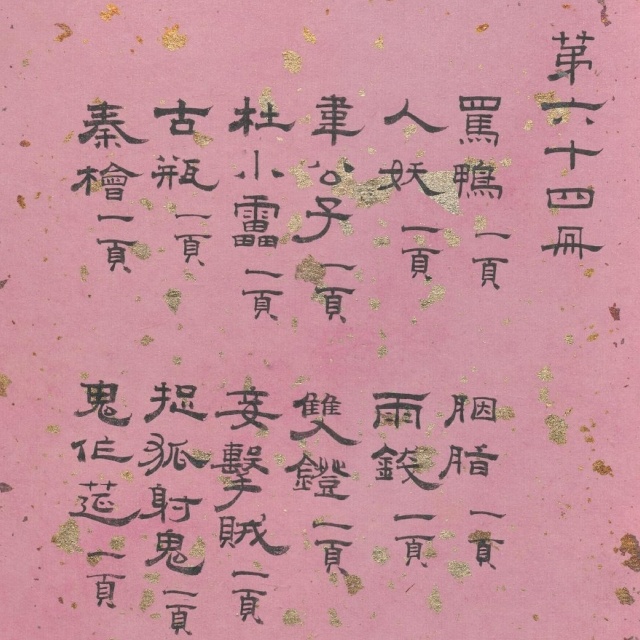 苐六十四冊
罵鴨一頁
人妖一頁
韋公子一頁
杜小靁一頁
古瓶一頁
秦檜一頁
胭脂一頁
雨錢一頁
雙鐙一頁
妾擊賊一頁
捉狐射鬼一頁
鬼作莚一頁